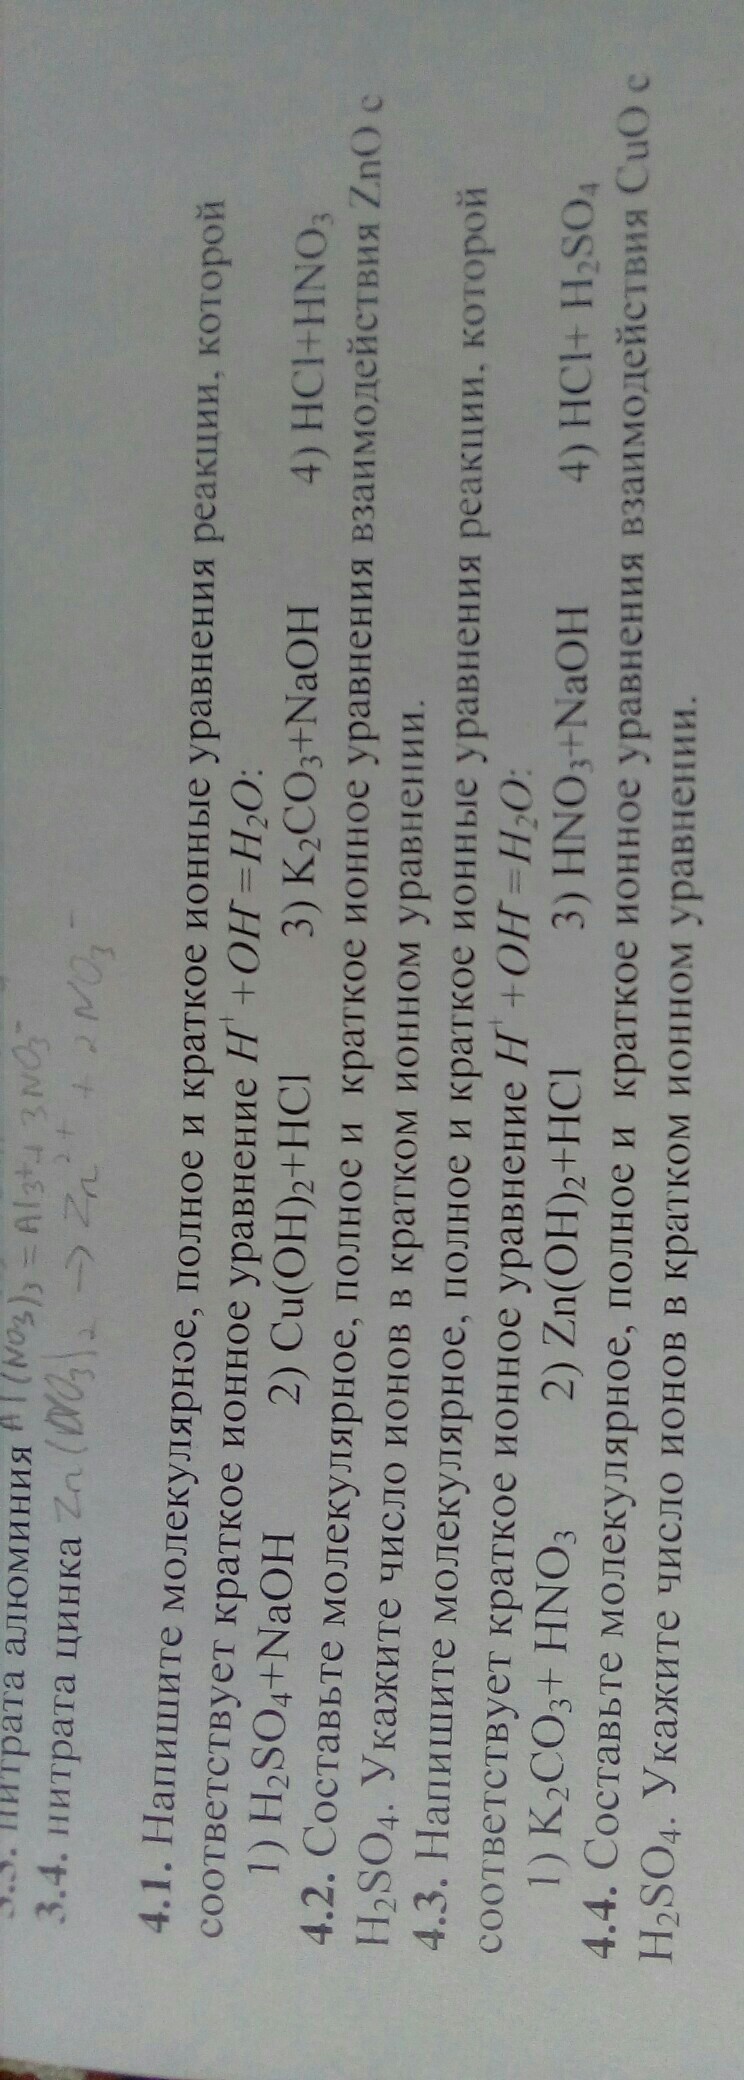 3.3. нитрата алюминия Al(NO3)3 = Al3+ + 3NO3-
3.4. нитрата цинка Zn(NO3)2 → Zn2+ + 2NO3-
4.1. Напишите молекулярное, полное и краткое ионные уравнения реакции, которой
соответствует краткое ионное уравнение H+ + OH- = H2O:
1) H2SO4+NaOH 2) Cu(OH)2+HCl 3) K2CO3+NaOH 4) HCl+HNO3
4.2. Составьте молекулярное, полное и краткое ионное уравнения взаимодействия ZnO с
H2SO4. Укажите число ионов в кратком ионном уравнении.
4.3. Напишите молекулярное, полное и краткое ионные уравнения реакции, которой
соответствует краткое ионное уравнение H+ + OH- = H2O:
1) K2CO3+ HNO3 2) Zn(OH)2+HCl 3) HNO3+NaOH 4) HCl+ H2SO4
4.4. Составьте молекулярное, полное и краткое ионное уравнения взаимодействия CuO с
H2SO4. Укажите число ионов в кратком ионном уравнении.